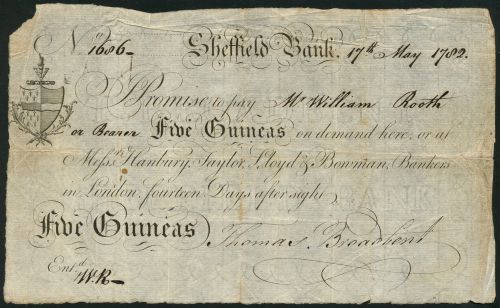 No 1686 Sheffield Bank. 17th May 1782.
I Promise to pay Mr William Rooth
or Bearer Five Guineas on demand here, or at
Messrs Hanbury, Taylor, Lloyd & Bowman, Bankers
in London, fourteen Days after sight
Five Guineas Thomas Broadbent
Entd W.R